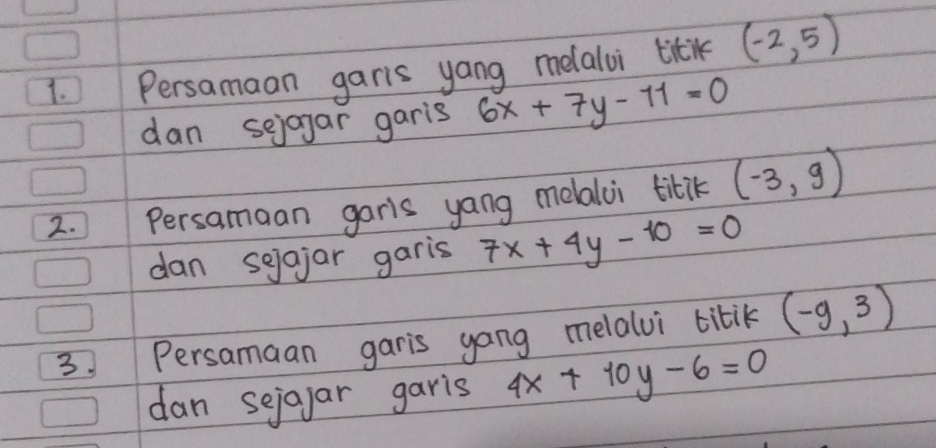 1. Persamaan garis yang melalui titik (-2,5)
dan sejajar garis 6x + 7y - 11 = 0
2. Persamaan garis yang melalui titik (-3, 9)
dan sejajar garis 7x + 4y - 10 = 0
3. Persamaan garis yang melalui titik (-9, 3)
dan sejajar garis 4x + 10y - 6 = 0